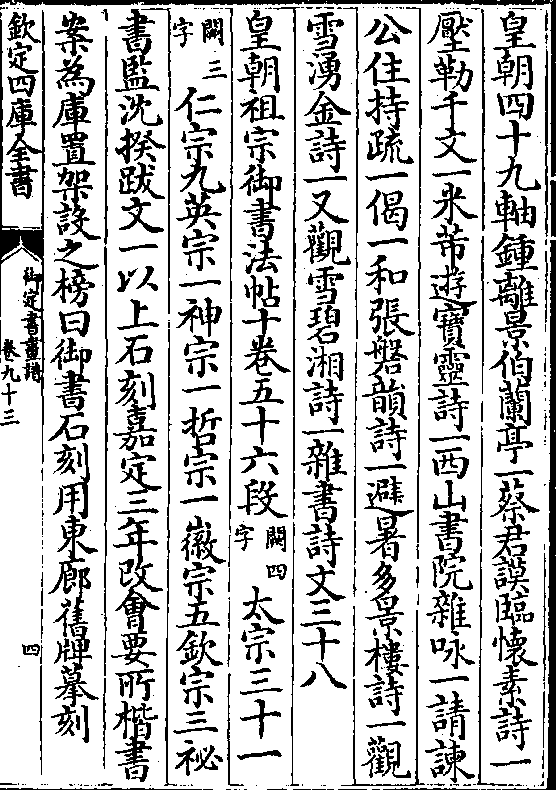 皇朝四十九軸鍾離景伯蘭亭一蔡君謨臨懷素詩一
壓勒千文一米芾遊寶靈詩一西山書院雜咏一請諫
公住持疏一偈一和張盤韻詩一避暑多景樓詩一觀
雪湧金詩一又觀雪碧湘詩一雜書詩文三十八
皇朝祖宗御書法帖十卷五十六段闕四字太宗三十一
闕三字仁宗九英宗一神宗一哲宗一徽宗五欽宗三祕
書監沈揆跋文一以上石刻嘉定三年改會要所楷書
案為庫置架設之榜曰御書石刻用東廊舊牌摹刻
欽定四庫全書
御定書畫譜
卷九十三
四